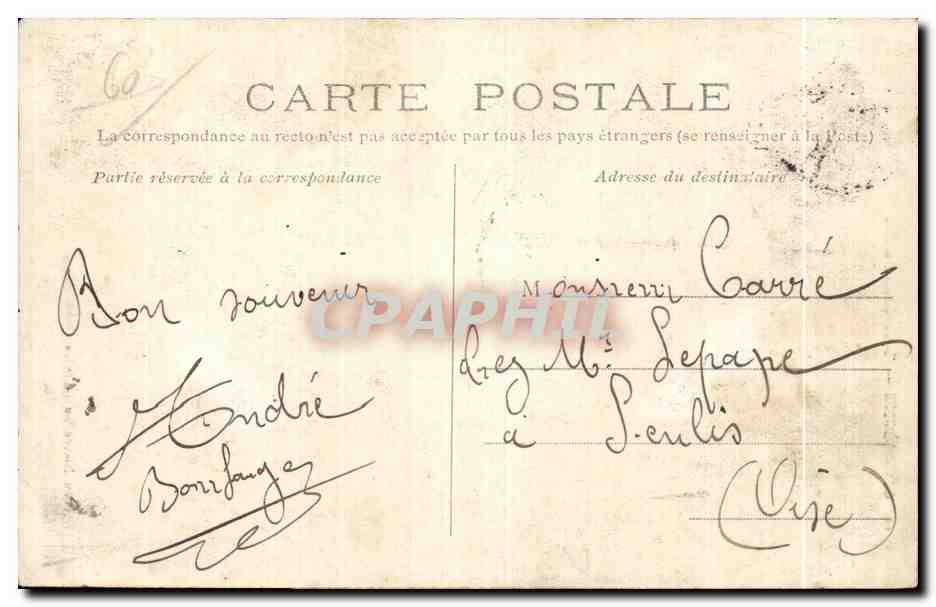 60
CARTE POSTALE
La correspondance au recto n'est pas acceptée par tous les pays étrangers (se renseigner à la Poste)
Partie réservée à la correspondance
Adresse du destinataire
Bon souvenir
André
Monsieur Carré
chez Mr Lepape
à Senlis
(Oise)
CPAPHIL